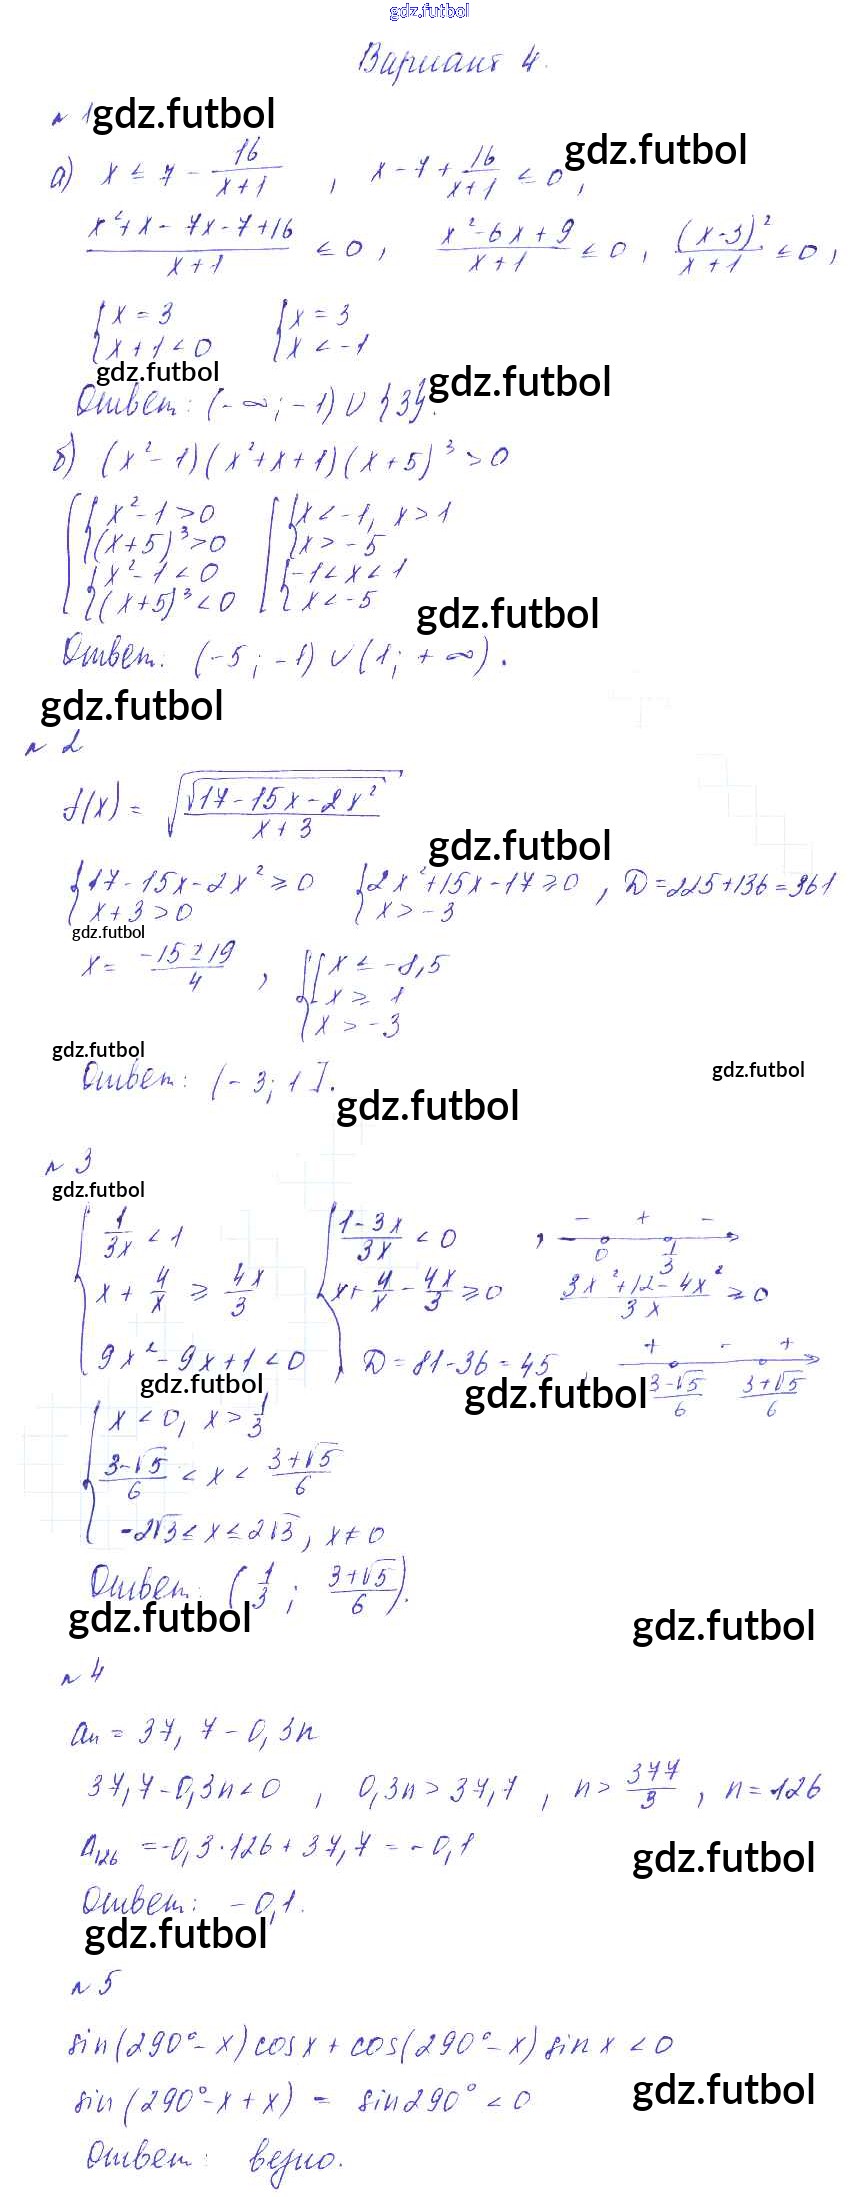 gdz.futbol
Вариант 4.
№ 1 gdz.futbol
а) x ≤ 7 - 16/(x+1) , x - 7 + 16/(x+1) ≤ 0 , gdz.futbol
(x²+x-7x-7+16)/(x+1) ≤ 0 , (x²-6x+9)/(x+1) ≤ 0 , (x-3)²/(x+1) ≤ 0 ,
{ x = 3 { x = 3
{ x + 1 < 0 { x < -1
gdz.futbol gdz.futbol
Ответ: (-∞; -1) ∪ {3}.
б) (x²-1)(x²+x+1)(x+5)³ > 0
[ { x²-1 > 0 [ { x < -1, x > 1
{ (x+5)³ > 0 { x > -5
{ x²-1 < 0 { -1 < x < 1
{ (x+5)³ < 0 { x < -5
gdz.futbol
Ответ: (-5; -1) ∪ (1; +∞).
gdz.futbol
№ 2
f(x) = √(√(17-15x-2x²)/(x+3))
gdz.futbol
{ 17-15x-2x² ≥ 0 { 2x²+15x-17 ≥ 0 , D = 225+136 = 361
{ x+3 > 0 { x > -3
gdz.futbol
x = (-15 ± 19)/4 , { [ x ≤ -8,5
x ≥ 1
x > -3
gdz.futbol gdz.futbol
Ответ: (-3; 1].
gdz.futbol
№ 3
gdz.futbol
{ 1/3x < 1 { (1-3x)/3x < 0 , - + -
0 1/3
x + 4/x ≥ 4x/3 x + 4/x - 4x/3 ≥ 0 (3x²+12-4x²)/3x ≥ 0
9x²-9x+1 < 0 , D = 81-36 = 45 , + - +
gdz.futbol gdz.futbol (3-√5)/6 (3+√5)/6
{ x < 0, x > 1/3
(3-√5)/6 < x < (3+√5)/6
-2√3 ≤ x ≤ 2√3, x ≠ 0
Ответ: (1/3 ; (3+√5)/6).
gdz.futbol gdz.futbol
№ 4
aₙ = 37,7 - 0,3n
37,7-0,3n < 0 , 0,3n > 37,7 , n > 377/3 , n = 126
a₁₂₆ = -0,3·126 + 37,7 = -0,1
gdz.futbol
Ответ: -0,1.
gdz.futbol
№ 5
sin(290°-x)cosx + cos(290°-x)sinx < 0
sin(290°-x+x) = sin290° < 0
gdz.futbol
Ответ: верно.